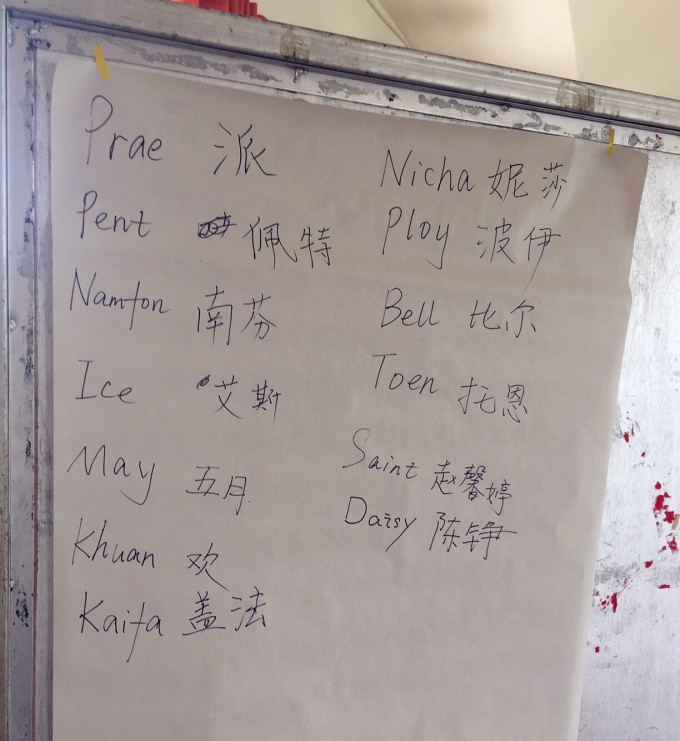 Prae 派
Pent 佩特
Namfon 南芬
Ice 艾斯
May 五月
Khuan 欢
Kaifa 盖法
Nicha 妮莎
Ploy 波伊
Bell 比尔
Toen 托恩
Saint 赵馨婷
Daisy 陈铮